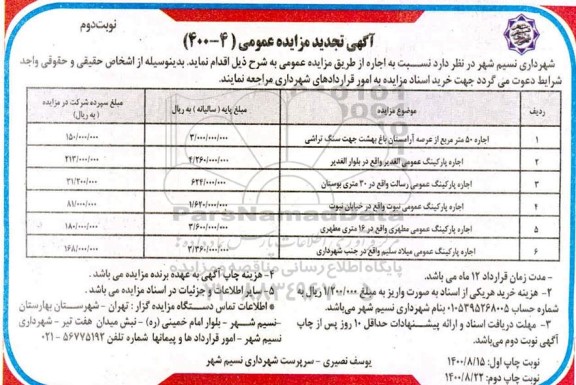 نوبت‌دوم
آگهی تجدید مزایده عمومی ( ۴-۴۰۰)
شهرداری نسیم شهر در نظر دارد نسبت به اجاره از طریق مزایده عمومی به شرح ذیل اقدام نماید. بدینوسیله از اشخاص حقیقی و حقوقی واجد
شرایط دعوت می گردد جهت خرید اسناد مزایده به امور قراردادهای شهرداری مراجعه نمایند.
ردیف موضوع مزایده مبلغ پایه ( سالیانه ) به ریال مبلغ سپرده شرکت در مزایده ( به ریال)
۱ اجاره ۵۰ متر مربع از عرصه آرامستان باغ بهشت جهت سنگ تراشی ۳/۰۰۰/۰۰۰/۰۰۰ ۱۵۰/۰۰۰/۰۰۰
۲ اجاره پارکینگ عمومی الغدیر واقع در بلوار الغدیر ۴/۲۶۰/۰۰۰/۰۰۰ ۲۱۳/۰۰۰/۰۰۰
۳ اجاره پارکینگ عمومی رسالت واقع در ۳۰ متری بوستان ۶۲۴/۰۰۰/۰۰۰ ۳۱/۲۰۰/۰۰۰
۴ اجاره پارکینگ عمومی نبوت واقع در خیابان نبوت ۱/۶۲۰/۰۰۰/۰۰۰ ۸۱/۰۰۰/۰۰۰
۵ اجاره پارکینگ عمومی مطهری واقع در ۱۶ متری مطهری ۳/۶۰۰/۰۰۰/۰۰۰ ۱۸۰/۰۰۰/۰۰۰
۶ اجاره پارکینگ عمومی میلاد سلیم واقع در جنب شهرداری ۳/۳۶۰/۰۰۰/۰۰۰ ۱۶۸/۰۰۰/۰۰۰
ParsNamadData
پایگاه اطلاع رسانی مناقصه و مزایده
- مدت زمان قرارداد ۱۲ ماه می باشد.
۲- هزینه خرید هریک از اسناد به صورت واریز به مبلغ ۱/۲۰۰/۰۰۰ ریال به
شماره حساب ۰۱۰۵۳۹۵۲۶۸۰۰۵ بنام شهرداری نسیم شهر می‌باشد.
۳- مهلت دریافت اسناد و ارائه پیشنهادات حداقل ۱۰ روز پس از چاپ
آگهی نوبت دوم می‌باشد.
نوبت چاپ اول: ۱۴۰۰/۸/۱۵
نوبت چاپ دوم: ۱۴۰۰/۸/۲۲
۴- هزینه چاپ آگهی به عهده برنده مزایده می باشد.
۵- سایر اطلاعات و جزئیات در اسناد مزایده می باشد.
* اطلاعات تماس دستگاه مزایده گزار : تهران - شهرستان بهارستان
-نسیم شهر - بلوار امام خمینی (ره) - نبش میدان هفت تیر - شهرداری
نسیم شهر - امور قرارداد ها و پیمانها شماره تلفن ۵۶۷۷۵۱۹۲ - ۰۲۱
یوسف نصیری - سرپرست شهرداری نسیم شهر